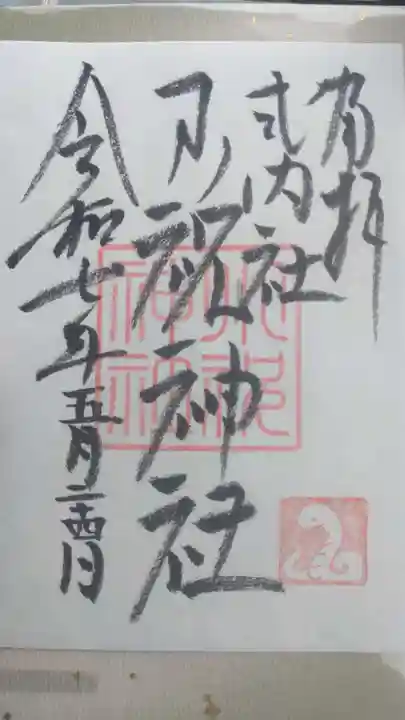 奉拝
式内社
祝神社
令和七年五月二十四日